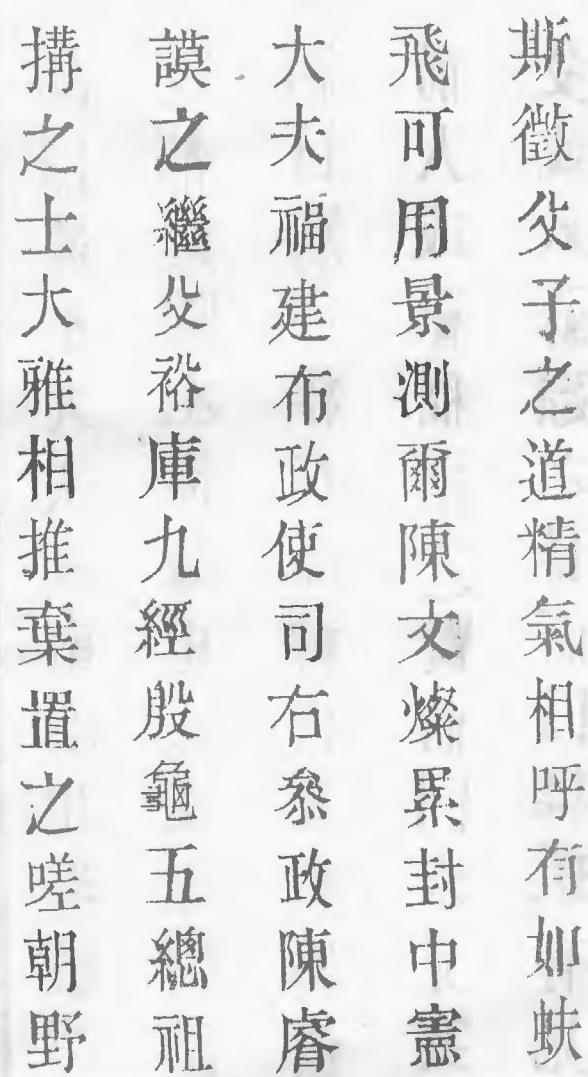 斯徵父子之道精氣相呼有如蚨
飛可用景測爾陳文燦累封中憲
大夫福建布政使司右叅政陳睿
謨之繼父裕庫九經殷龜五總祖
搆之士大雅相推棄置之嗟朝野